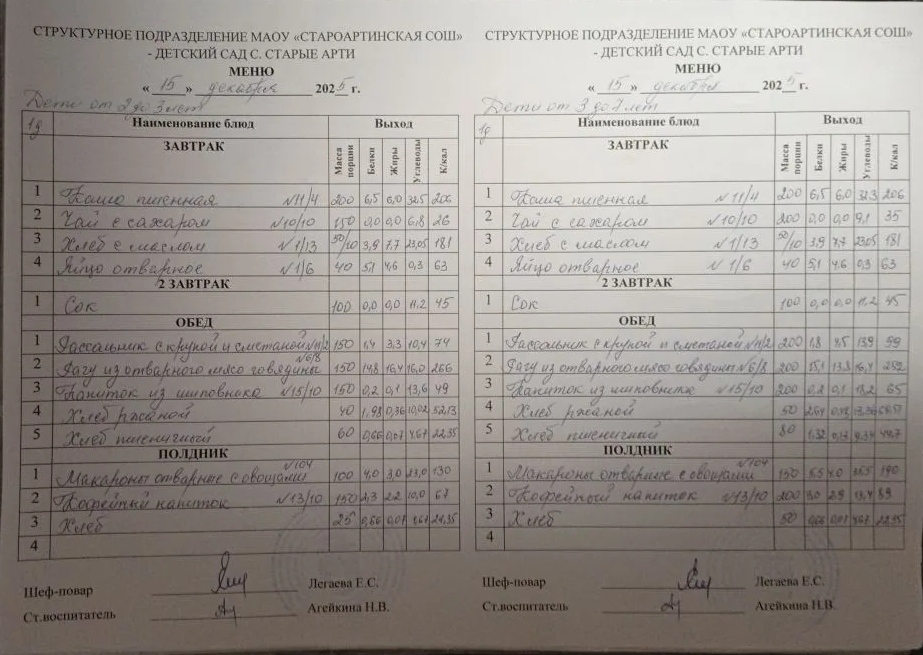 СТРУКТУРНОЕ ПОДРАЗДЕЛЕНИЕ МАОУ «СТАРОАРТИНСКАЯ СОШ»
- ДЕТСКИЙ САД С. СТАРЫЕ АРТИ
МЕНЮ
« 15 » декабря 2025 г.
Дети от 2 до 3 лет
1д Наименование блюд Выход
ЗАВТРАК Масса порции Белки Жиры Углеводы К/кал
1 Каша пшенная №11/4 200 6,5 6,0 32,5 206
2 Чай с сахаром №10/10 150 0,0 0,0 6,8 26
3 Хлеб с маслом №1/13 50/10 3,9 7,7 23,05 181
4 Яйцо отварное №1/6 40 5,1 4,6 0,3 63
2 ЗАВТРАК
1 Сок 100 0,0 0,0 11,2 45
ОБЕД
1 Рассольник с крупой и сметаной №11/2 150 1,4 3,3 10,4 74
2 Рагу из отварного мясо говядины №6/8 150 14,8 16,4 16,0 266
3 Напиток из шиповника №15/10 150 0,2 0,1 13,6 49
4 Хлеб ржаной 40 1,98 0,36 10,02 52,13
5 Хлеб пшеничный 60 0,66 0,07 4,67 22,35
ПОЛДНИК
1 Макароны отварные с овощами №104 100 4,0 3,0 23,0 130
2 Кофейный напиток №13/10 150 2,3 2,2 10,0 67
3 Хлеб 25 0,66 0,07 4,67 22,35
4
Шеф-повар Легаева Е.С.
Ст.воспитатель Агейкина Н.В.
СТРУКТУРНОЕ ПОДРАЗДЕЛЕНИЕ МАОУ «СТАРОАРТИНСКАЯ СОШ»
- ДЕТСКИЙ САД С. СТАРЫЕ АРТИ
МЕНЮ
« 15 » декабря 2025 г.
Дети от 3 до 7 лет
1д Наименование блюд Выход
ЗАВТРАК Масса порции Белки Жиры Углеводы К/кал
1 Каша пшенная №11/4 200 6,5 6,0 32,3 206
2 Чай с сахаром №10/10 200 0,0 0,0 9,1 35
3 Хлеб с маслом №1/13 50/10 3,9 7,7 23,05 181
4 Яйцо отварное №1/6 40 5,1 4,6 0,3 63
2 ЗАВТРАК
1 Сок 100 0,0 0,0 11,2 45
ОБЕД
1 Рассольник с крупой и сметаной №11/2 200 1,8 4,5 13,9 99
2 Рагу из отварного мясо говядины №6/8 200 15,1 13,8 16,4
3 Напиток из шиповника №15/10 200 0,2 0,1 18,2 65
4 Хлеб ржаной 50
5 Хлеб пшеничный 80 1,32 9,34 44,7
ПОЛДНИК
1 Макароны отварные с овощами №104 150 5,5 4,0
2 Кофейный напиток №13/10 200 3,0 2,9 13,4 89
3 Хлеб 50 0,66 0,07 4,67 22,35
4
Шеф-повар Легаева Е.С.
Ст.воспитатель Агейкина Н.В.